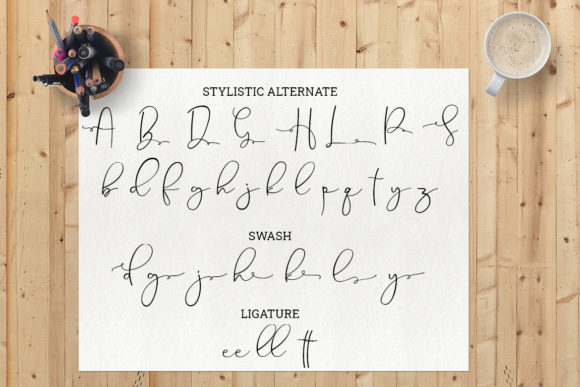 STYLISTIC ALTERNATE
A B D G H L P S
b d f g h j k l p q t y z
SWASH
d g j h k l y
LIGATURE
ee ll tt